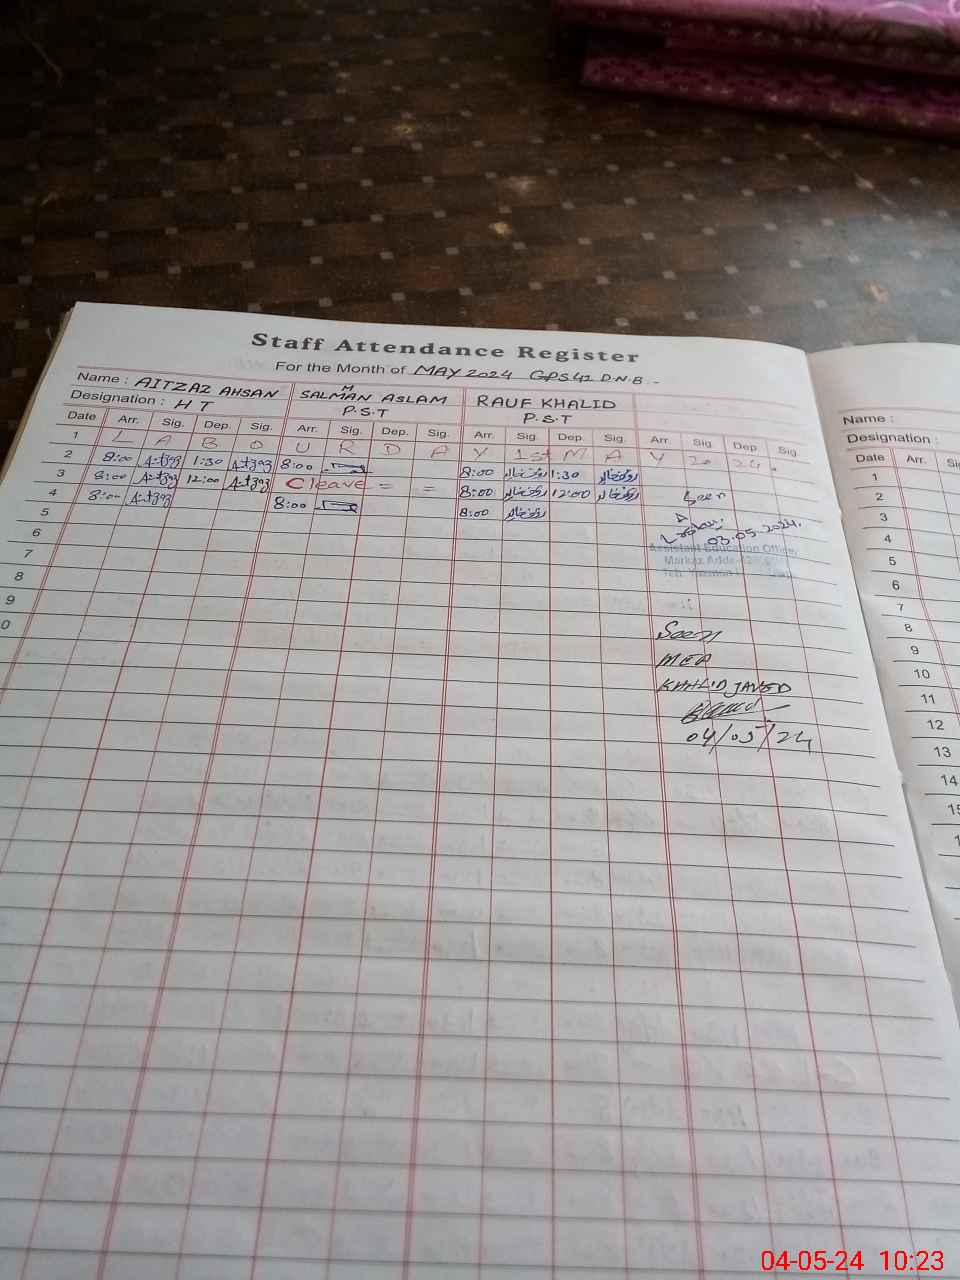 Staff Attendance Register
For the Month of MAY 2024 GPS 42 D.N.B.-
Name : AITZAZ AHSAN M SALMAN ASLAM RAUF KHALID
Designation : H T P.S.T P.S.T
Date Arr. Sig. Dep. Sig. Arr. Sig. Dep. Sig. Arr. Sig. Dep. Sig. Arr. Sig. Dep. Sig.
1 L A B O U R D A Y 1st M A Y 20 24.
2 8:00 Aitzaz 1:30 Aitzaz 8:00 8:00 رؤف خالد 1:30 رؤف خالد
3 8:00 Aitzaz 12:00 Aitzaz Cleave = = 8:00 رؤف خالد 12:00 رؤف خالد Seen
4 8:00 Aitzaz 8:00 8:00 رؤف خالد
5
03.05.2024.
Assistant Education Officer
Markaz Adda
Teh. Yazman
6
7
8
9
0
Seen
MEA
KHALID JAVED
04/05/24
Name :
Designation :
Date Arr. Sig.
1
2
3
4
5
6
7
8
9
10
11
12
13
14
15
1
04-05-24 10:23